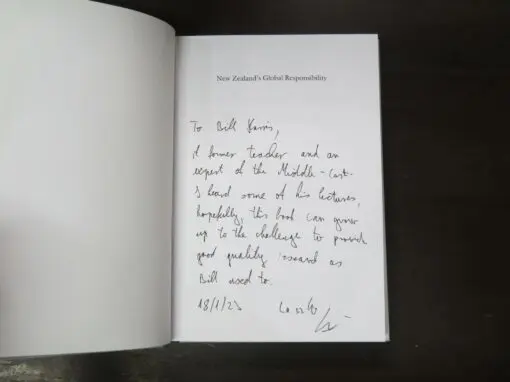 New Zealand's Global Responsibility
To Bill Harris,
A former teacher and an
expert of the Middle-East.
I heard some of his lectures,
hopefully, this book can
up to the challenge to provide
good quality research as
Bill used to.
18/1/23